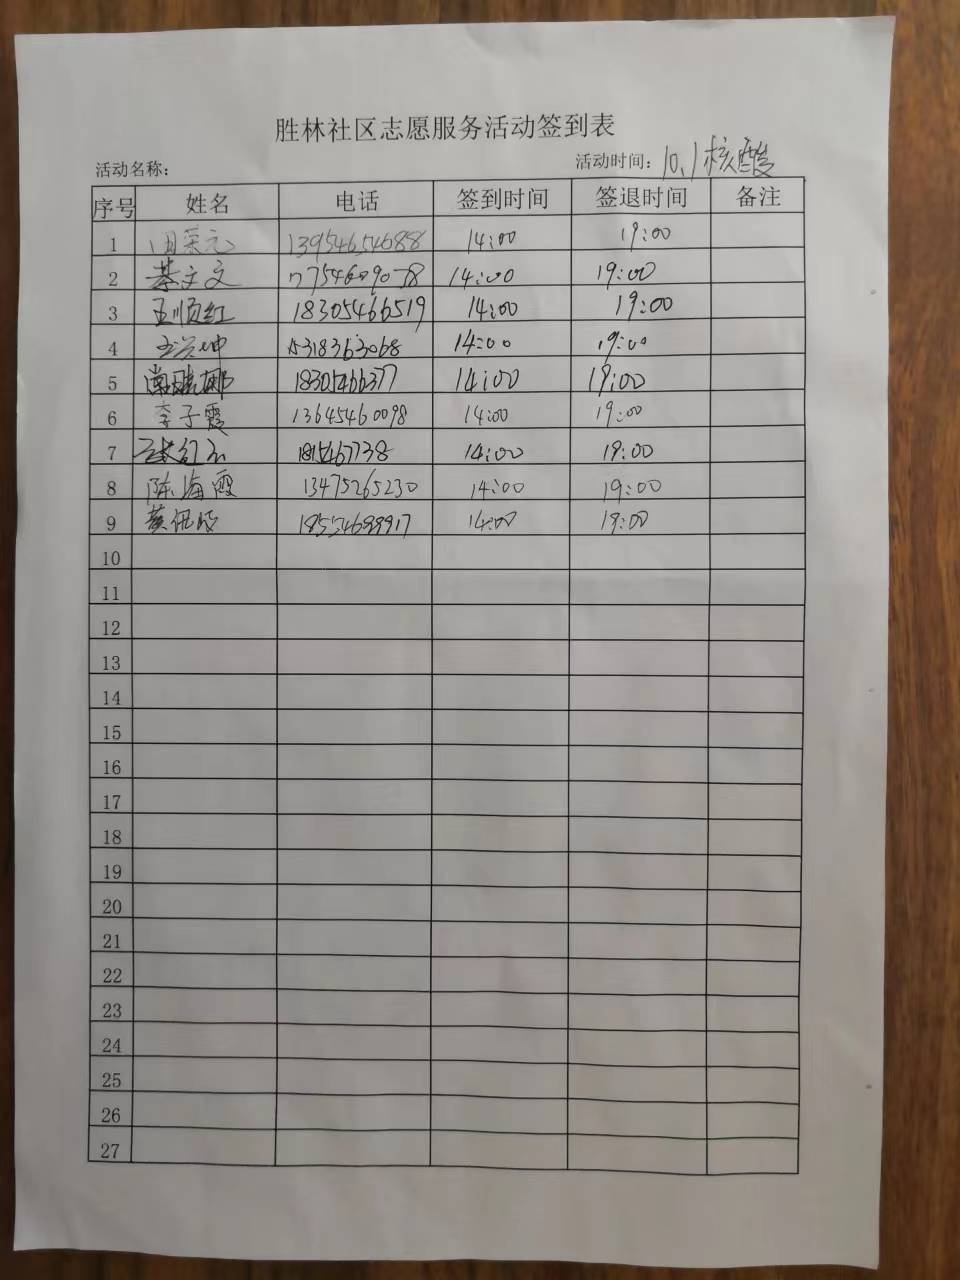 胜林社区志愿服务活动签到表
活动名称： 活动时间：10.1核酸
序号 姓名 电话 签到时间 签退时间 备注
1 周荣元 13954654688 14:00 19:00
2 綦文文 14:00 19:00
3 王顺红 18305466519 14:00 19:00
4 15318363068 14:00 19:00
5 18305466377 14:00 19:00
6 李子霞 13645460098 14:00 19:00
7 14:00 19:00
8 陈海霞 13475265230 14:00 19:00
9 黄 14:00 19:00
10
11
12
13
14
15
16
17
18
19
20
21
22
23
24
25
26
27